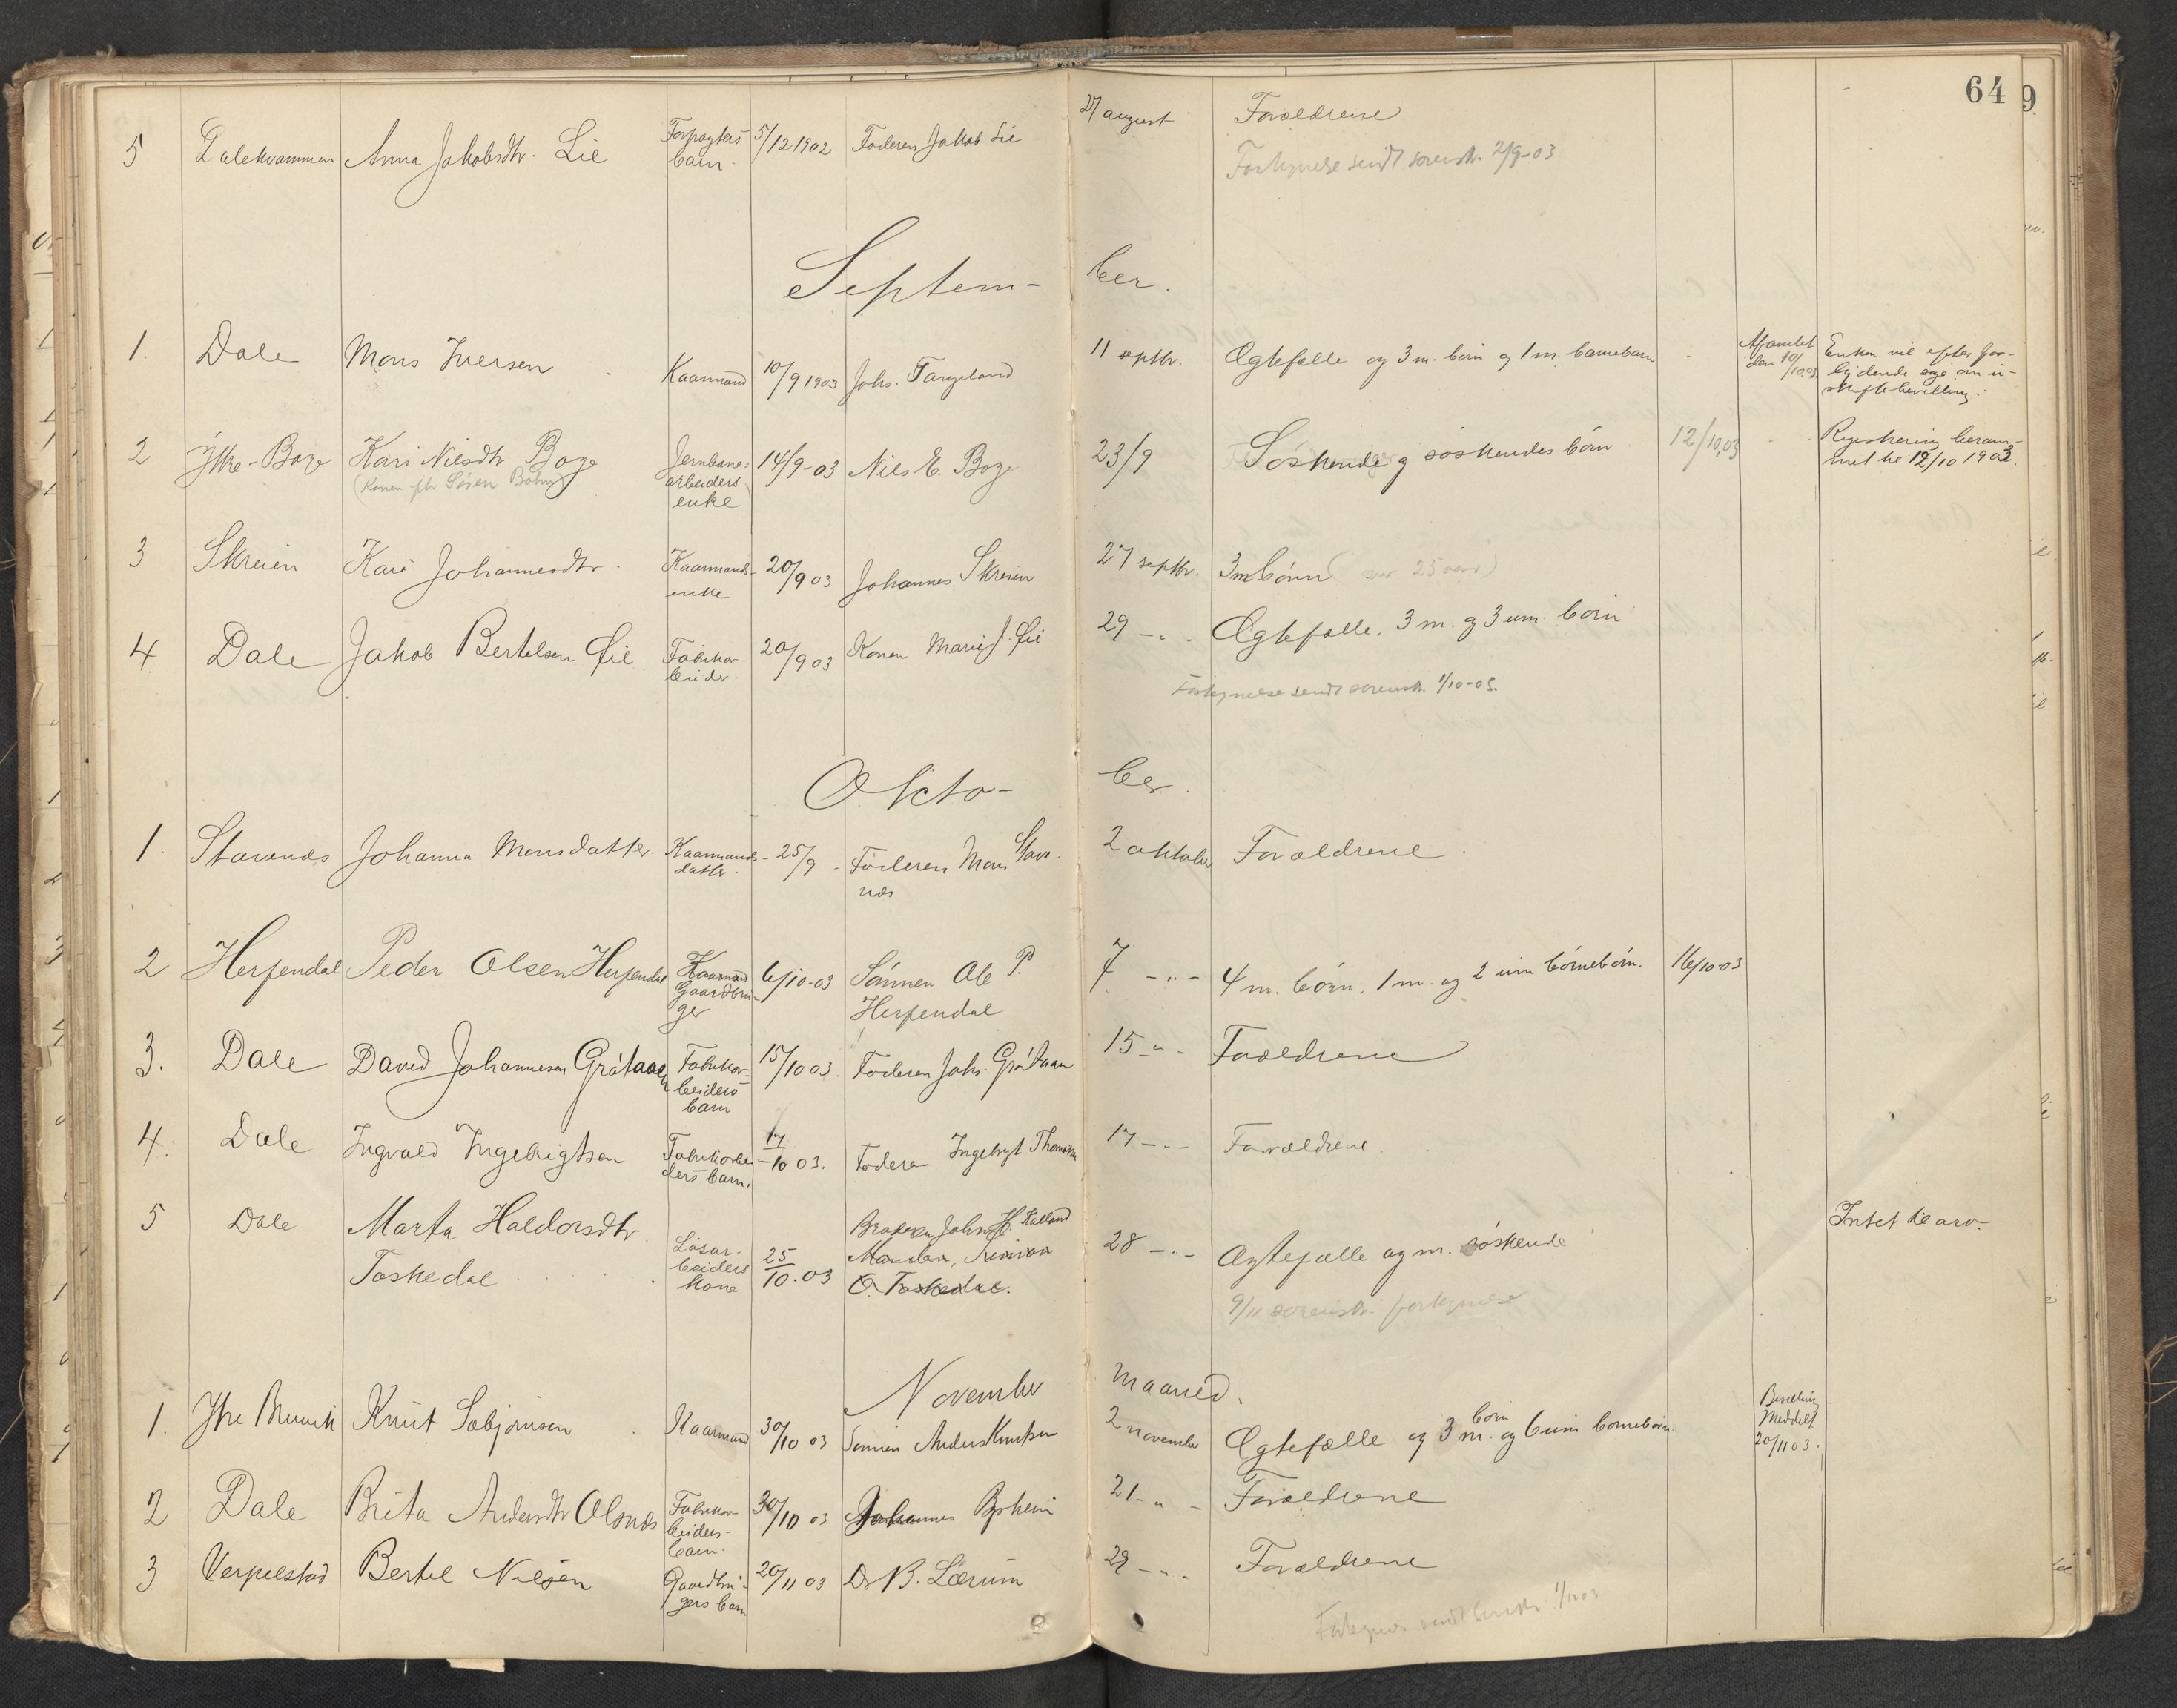 64 9
5 Dalekvammen Anna Jakobsdtr. Lie Forpagters barn. 5/12 1902 Faderen Jakob Lie 27 august Forældrene
Fortegnelse sendt sorenskr. 2/9-03
Septem- ber.
1. Dale Mons Iversen Kaarmand 10/9 1903 Johs. Fangeland 11 septbr. Ægtefælle og 3 m. børn og 1 m. barnebarn
Enken vil efter for-
lydende søge om u-
skiftebevilling.
2 Ytre-Boge Kari Nilsdtr Boge Jernbane- arbeiders enke 14/9-03 Nils E. Boge 23/9 Søskende og søskendes børn 12/10.03 Registrering beram-
met til 12/10 1903.
3 Skreien Kari Johannesdtr. Kaarmands- enke 20/9 03 Johannes Skreien 27 septbr. 3 m børn (over 25 aar)
4 Dale Jakob Bertelsen Lie Fabrikar- beider 20/9 03 Konen Marie J. Lie 29 -"- Ægtefælle, 3 m. og 3 um. børn
Fortegnelse sendt sorenskr. 1/10-03.
Okto- ber.
1 Stavenæs Johanna Monsdatter Kaarmands- datter. 25/9 - Faderen Mons Stave-
næs 2 oktober Forældrene
2 Herfendal Peder Olsen Herfendal Kaarmand Gaardbru- ger 6/10-03 Sønnen Ole P.
Herfendal 7 -"- 4 m. børn, 1 m. og 2 um børnebørn. 16/10-03
3. Dale David Johannesen Gråtaaen Fabrikar- beiders barn 15/10 03. Faderen Johs. Gråtaaen 15 -"- Forældrene
4. Dale Ingvald Ingebrigtsen Fabrikarbei- ders barn. 17/10 03. Faderen Ingebrigt Thomsen 17 -"- Forældrene
5 Dale Marta Haldorsdtr.
Toskedal Løsar- beiders kone 25/10.03 Broderen Johns H. Kalland
Manden,
O. Toskedal. 28 -"- Ægtefælle og m. søskende Intet til arv.
9/11 sorenskr. fortegnelse
November maaned.
1. Ytre Bruvik Knut Sæbjørnsen Kaarmand 30/10 03 Sønnen Anders Knutsen 2 november Ægtefælle og 3 m. børn og 6 um børnebørn Bevilling
Meddelt
20/11 03.
2 Dale Brita Andersdtr Olsnæs Fabrikar- beiders- barn. 30/10 03 Johannes Bysheim 21 -"- Forældrene
3 Verpelstad Bertel Nilsen Gaardbru- gers barn 20/11 03 Dr B. Lærum 29 -"- Forældrene